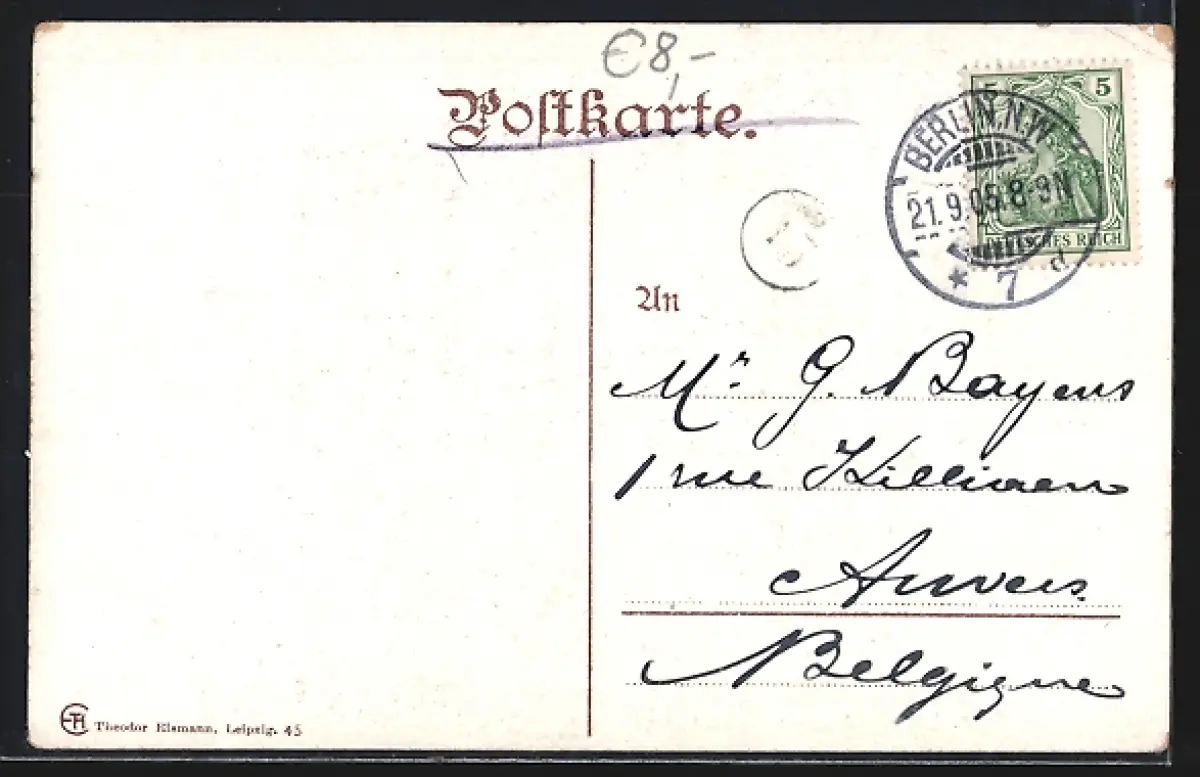 €8,-
Postkarte.
5 5
DEUTSCHES REICH
BERLIN, N.W.
21.9.05.8-9N
* 7 d
An
Mr. G. Bayens
1 rue Killiaen
Anvers.
Belgique
Theodor Eismann, Leipzig. 45